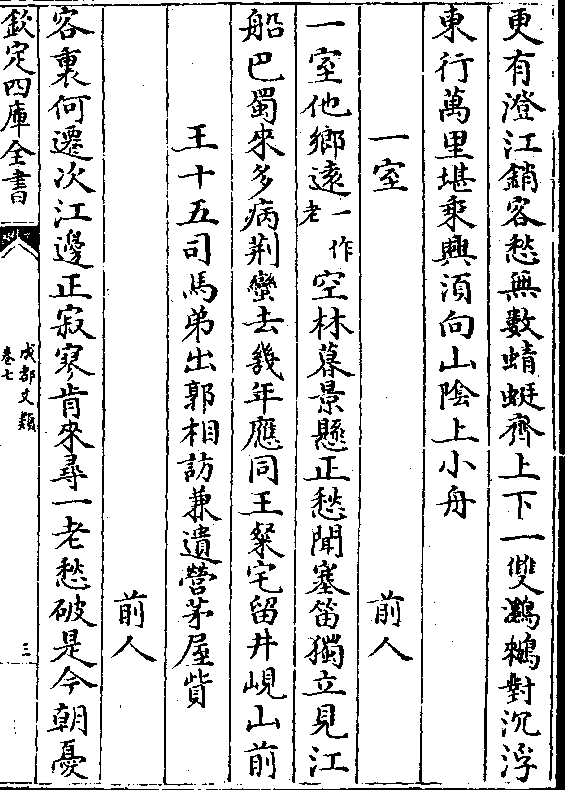 更有澄江銷客愁無數蜻蜓齊上下一雙鸂鶒對沉浮
東行萬里堪乘興須向山陰上小舟
一室　前人
一室他鄉遠一作老空林暮景懸正愁聞塞笛獨立見江
船巴蜀來多病荆蠻去幾年應同王粲宅留井峴山前
王十五司馬弟出郭相訪兼遺營茅屋貲
前人
客裏何遷次江邊正寂寥肯來尋一老愁破是今朝憂
欽定四庫全書
成都文類
卷七
三